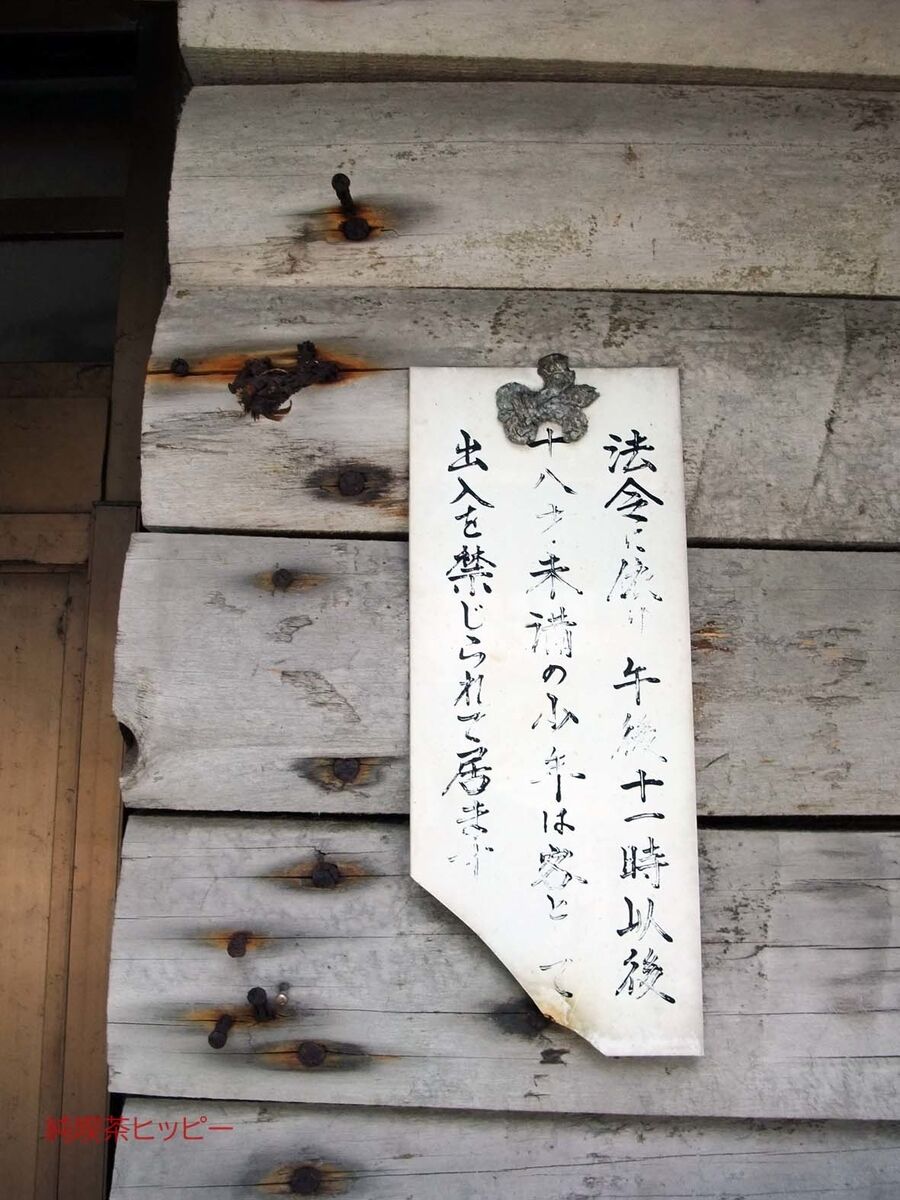 法令に依り 午後十一時以後
十八才未満の少年は客として
出入を禁じられて居ます
純喫茶ヒッピー